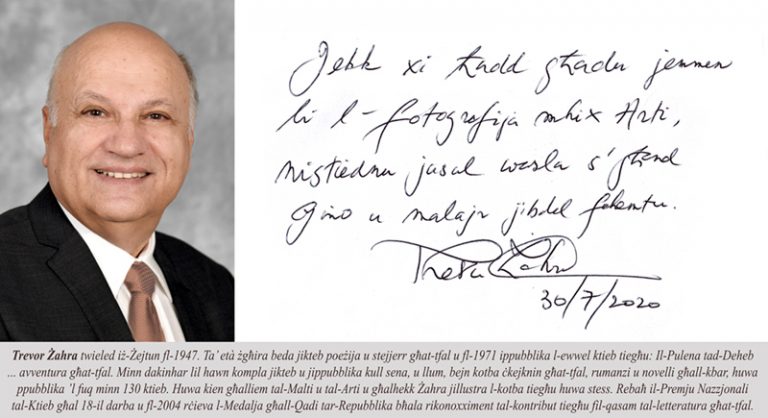 Jekk xi ħadd għadu jemmen
li l-fotografija mhix Arti,
nistiednu jasal warla s'għand
Gino u malajr jibdel fehmtu.
Trevor Żahra
30/7/2020
Trevor Żahra twieled iż-Żejtun fl-1947. Ta' età żgħira beda jikteb poeżija u stejjer għat-tfal u fl-1971 ippubblika l-ewwel ktieb tiegħu: Il-Pulena tad-Deheb
... avventura għat-tfal. Minn dakinhar lil hawn kompla jikteb u jippubblika kull sena, u llum, bejn kotba ċkejknin għat-tfal, rumanzi u novelli għall-kbar, huwa
ppubblika 'l fuq minn 130 ktieb. Huwa kien għalliem tal-Malti u tal-Arti u għalhekk Żahra jillustra l-kotba tiegħu huwa stess. Rebaħ il-Premju Nazzjonali
tal-Ktieb għal 18-il darba u fl-2004 rċieva l-Medalja għall-Qadi tar-Repubblika bħala rikonoxximent tal-kontribut tiegħu fil-qasam tal-letteratura għat-tfal.